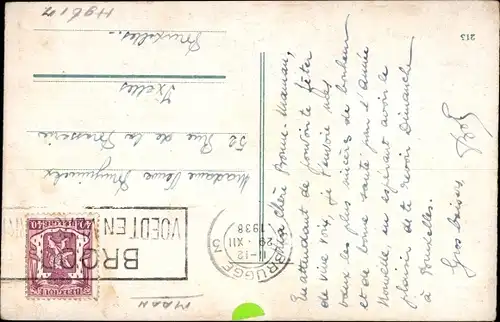 Ma chère Bonne-Maman,
En attendant de pouvoir te fêter
de vive voix, je t'envoie mes
vœux les plus sincères de bonheur
et de bonne santé pour l'année
Nouvelle, en espérant avoir le
plaisir de te revoir Dimanche
à Bruxelles.
Gros baisers,
Madame Veuve
52 Rue de la Brasserie
Ixelles
Bruxelles
213
BRUGGE
3
11-12
29 XII
1938
BROOD
VOEDT EN
40
MAAN